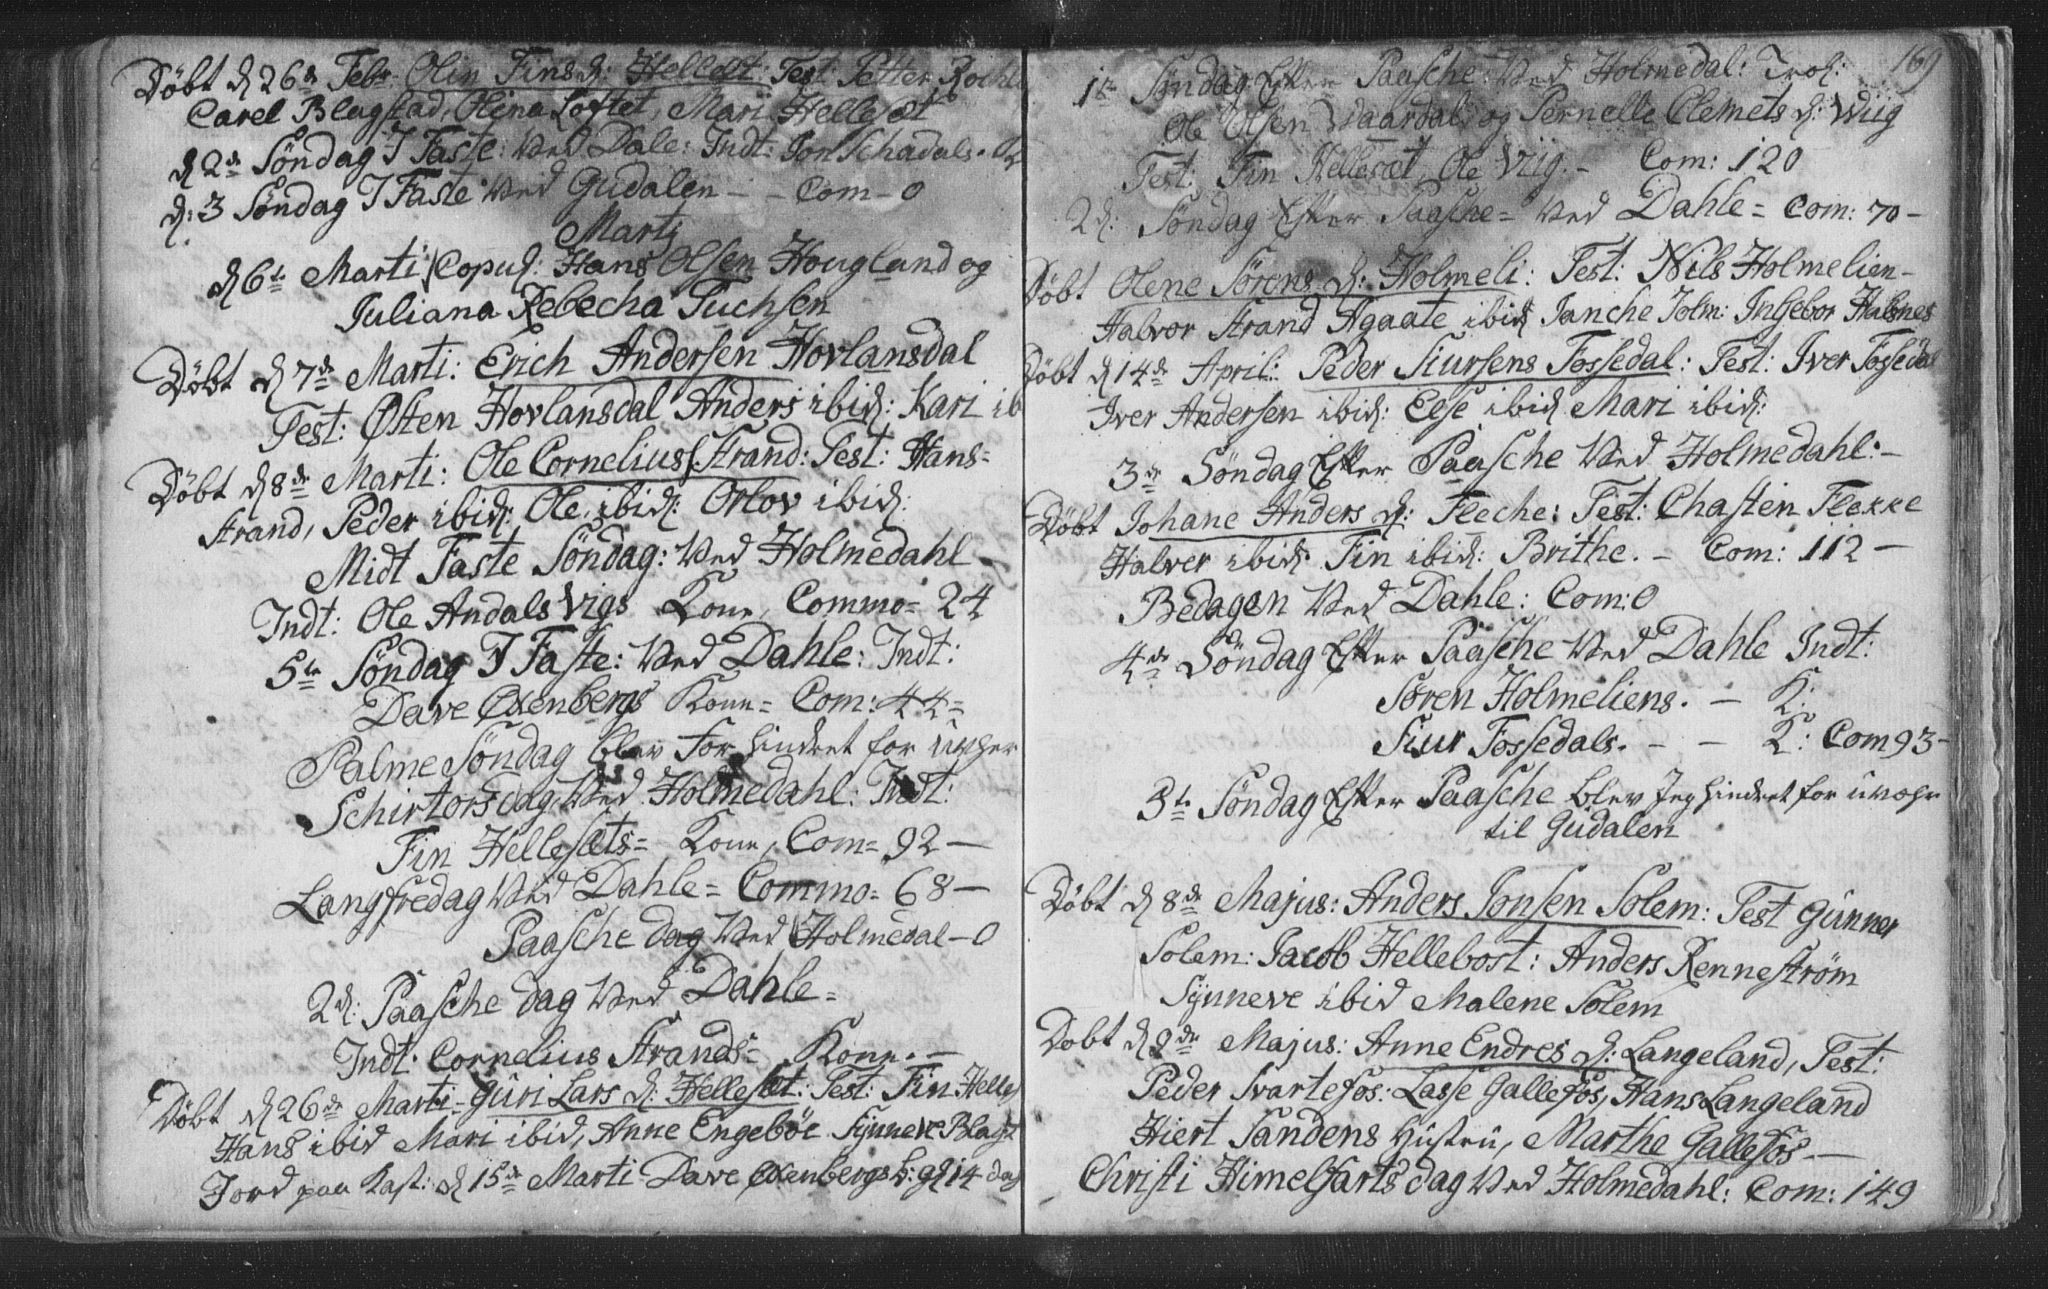 Döbt d 26de Febr. Olin Fins d: Hellesæt: Test: Petter
Carel Blagstad, Olina Loftet, Mari Hellesæt
d 2de Söndag I Faste: Ved Dale: Indt: Jon Schadals.
d: 3 Söndag I Faste Ved Gudalen - - Com - 0
Marti
d 6te Marti Copul: Hans Olsen Hougland og
Juliana Rebecha Tuchsen
Döbt d 7de Marti: Erich Andersen Hovlansdal
Test: Østen Hovlansdal Anders ibid: Kari ib
Döbt d 8de Marti: Ole Cornelius: Strand: Test: Hans=
Strand, Peder ibid: Ole ibid: Orlov ibid:
Midt Faste Söndag: Ved Holmedahl -
Indt: Ole Andals Vigs Kone, Commo= 24
5te Söndag I Faste: Ved Dahle: Indt:
Dave Oxenbergs Kone= Com: 44=
Palme Söndag blev For hindret for
Schirtorsdag, Ved Holmedahl: Indt:
Fin Hellesæts= Kone, Com= 92 -
Langfredag Ved Dahle= Commo= 68 -
Paasche dag Ved Holmedal - 0
2d: Paasche dag Ved Dahle=
Indt: Cornelius Strands= Kone. -
Döbt d 26de Marti= Guri Lars d: Hellesæt: Test: Fin Helles
Hans ibid Mari ibid, Anne Engeböe Synneve Blagst
Jord paa Kast: d 15de Marti Dave Oxenbergs b: gl 14 dag
169
1te Söndag Efter Paasche: Ved Holmedal: Trol:
Ole Olsen Vaardal og Pernelle Clemets d: Wiig
Test: Fin Hellesæt, Ole Viig. - Com: 120
2d: Söndag Efter Paasche= Ved Dahle= Com: 70 -
Döbt Olene Sörens d: Holmeli: Test: Nils Holmelien -
Halvor Strand Agaate ibid Janche Holm: Ingebor Halsnes
Döbt d 14de April: Peder Siursens Fossedal: Test: Iver Fossedal
Iver Andersen ibid: Else ibid Mari ibid:
3de Söndag Efter Paasche Ved Holmedahl: -
Döbt Johane Anders d: Fleche: Test: Chasten Flekke
Halver ibid: Fin ibid: Brithe. - Com: 112 -
Bedagen Ved Dahle: Com: 0
4de Söndag Efter Paasche Ved Dahle Indt:
Sören Holmeliens. - K:
Siur Fossedals. - - K: Com 93 -
5te Söndag Efter Paasche blev Jeg hindret for
til Gudalen
Döbt d 8de Majus: Anders Jonsen Solem: Test Gunner
Solem: Jacob Hellebost: Anders Renneström
Synneve ibid Malene Solem
Döbt d 9de Majus: Anne Endres d: Langeland, Test:
Peder Svartefos: Lasse Gallefos, Hans Langeland
Hiert Sandens Hustru, Marthe Gallefos -
Christi Himelfarts dag Ved Holmedahl: Com: 149